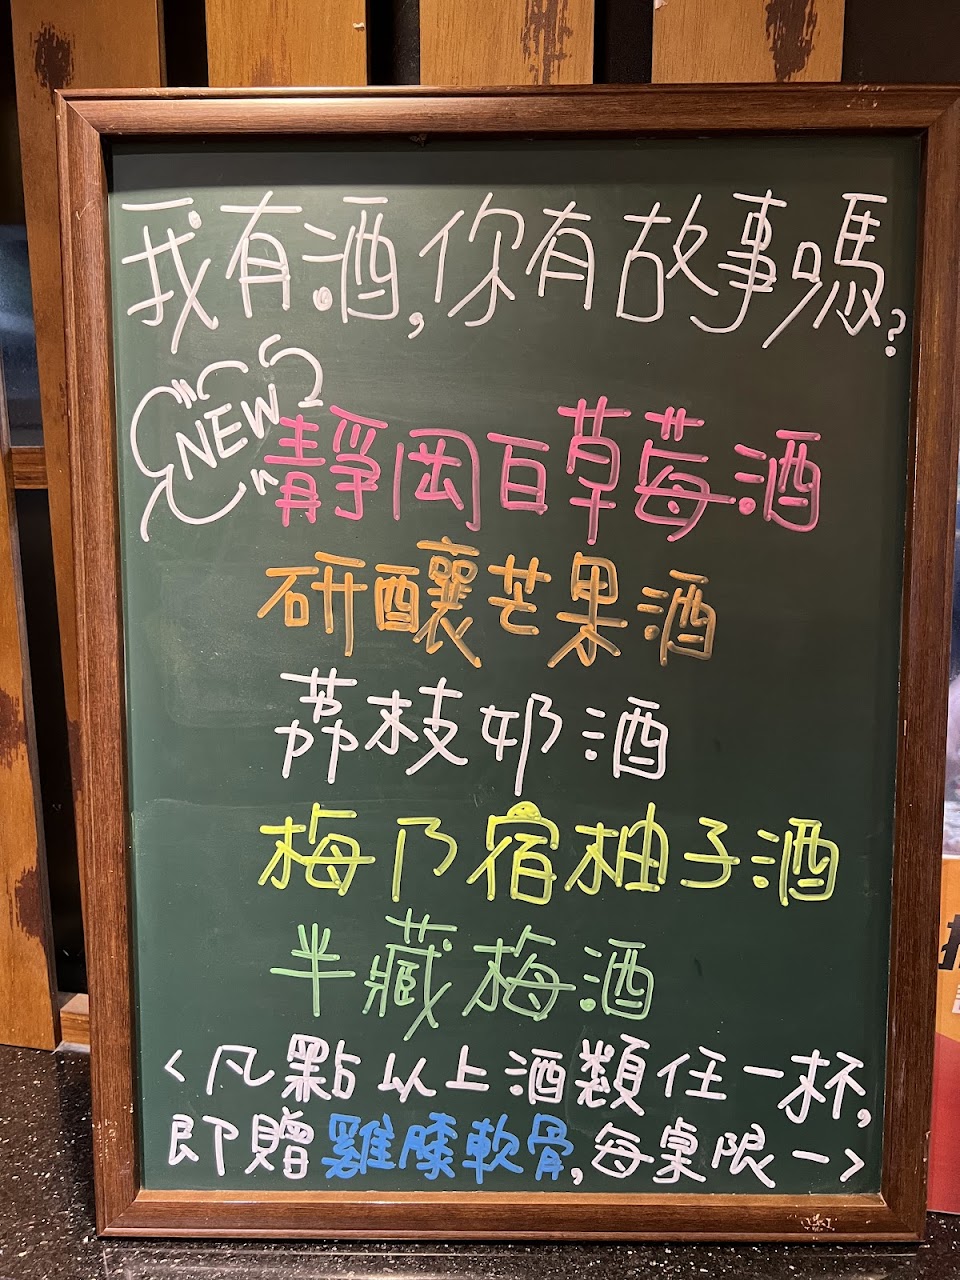 我有酒,你有故事嗎?
NEW
靜岡白草莓酒
研釀芒果酒
荔枝奶酒
梅乃宿柚子酒
半藏梅酒
<凡點以上酒類任一杯,
即贈雞膝軟骨,每桌限一>